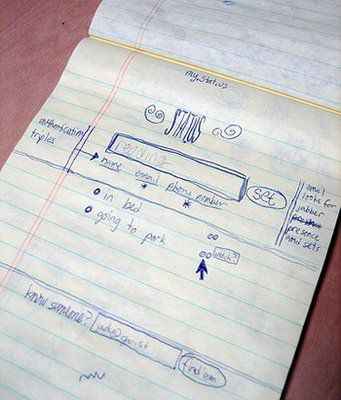 my.stat.us
STATUS
authentication
triples
reading
name email phone number
set
and
looks for
jabber
presence
and sets
in bed
going to park
watch?
know someone?
find em